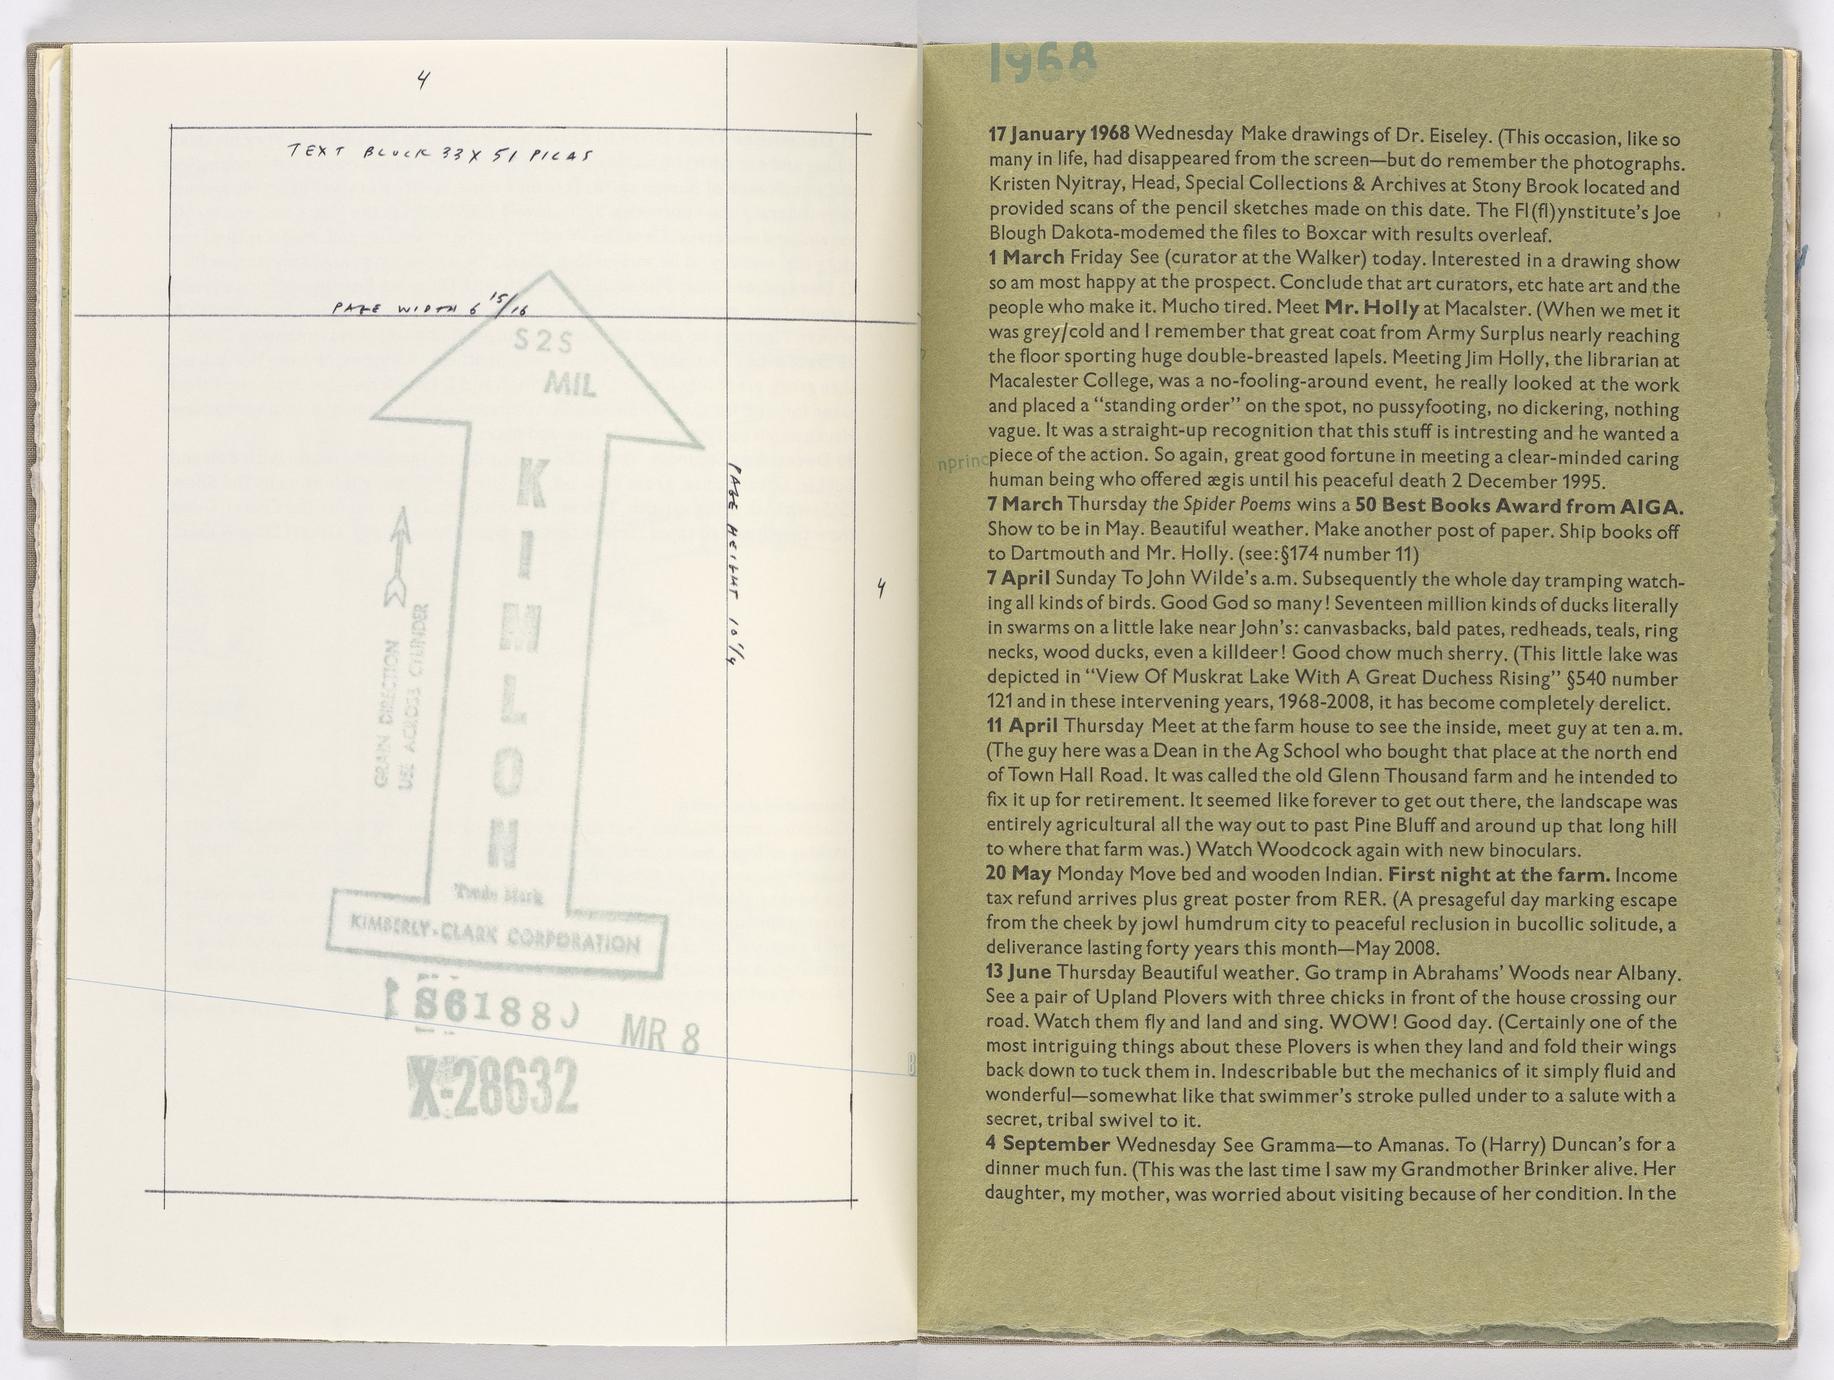 4
TEXT BLOCK 33 X 51 PICAS
PAGE WIDTH 6 15/16
S2S
MIL
KIMLON
PAGE HEIGHT 10 1/4
4
GRAIN DIRECTION
USE ACROSS CYLINDER
Trade Mark
KIMBERLY-CLARK CORPORATION
MR 8
X-28632
1968
17 January 1968 Wednesday Make drawings of Dr. Eiseley. (This occasion, like so
many in life, had disappeared from the screen—but do remember the photographs.
Kristen Nyitray, Head, Special Collections & Archives at Stony Brook located and
provided scans of the pencil sketches made on this date. The Fl(fl)ynstitute's Joe
Blough Dakota-modemed the files to Boxcar with results overleaf.
1 March Friday See (curator at the Walker) today. Interested in a drawing show
so am most happy at the prospect. Conclude that art curators, etc hate art and the
people who make it. Mucho tired. Meet Mr. Holly at Macalster. (When we met it
was grey/cold and I remember that great coat from Army Surplus nearly reaching
the floor sporting huge double-breasted lapels. Meeting Jim Holly, the librarian at
Macalester College, was a no-fooling-around event, he really looked at the work
and placed a "standing order" on the spot, no pussyfooting, no dickering, nothing
vague. It was a straight-up recognition that this stuff is intresting and he wanted a
piece of the action. So again, great good fortune in meeting a clear-minded caring
human being who offered ægis until his peaceful death 2 December 1995.
7 March Thursday the Spider Poems wins a 50 Best Books Award from AIGA.
Show to be in May. Beautiful weather. Make another post of paper. Ship books off
to Dartmouth and Mr. Holly. (see:§174 number 11)
7 April Sunday To John Wilde's a.m. Subsequently the whole day tramping watch-
ing all kinds of birds. Good God so many! Seventeen million kinds of ducks literally
in swarms on a little lake near John's: canvasbacks, bald pates, redheads, teals, ring
necks, wood ducks, even a killdeer! Good chow much sherry. (This little lake was
depicted in "View Of Muskrat Lake With A Great Duchess Rising" §540 number
121 and in these intervening years, 1968-2008, it has become completely derelict.
11 April Thursday Meet at the farm house to see the inside, meet guy at ten a.m.
(The guy here was a Dean in the Ag School who bought that place at the north end
of Town Hall Road. It was called the old Glenn Thousand farm and he intended to
fix it up for retirement. It seemed like forever to get out there, the landscape was
entirely agricultural all the way out to past Pine Bluff and around up that long hill
to where that farm was.) Watch Woodcock again with new binoculars.
20 May Monday Move bed and wooden Indian. First night at the farm. Income
tax refund arrives plus great poster from RER. (A presageful day marking escape
from the cheek by jowl humdrum city to peaceful reclusion in bucollic solitude, a
deliverance lasting forty years this month—May 2008.
13 June Thursday Beautiful weather. Go tramp in Abrahams' Woods near Albany.
See a pair of Upland Plovers with three chicks in front of the house crossing our
road. Watch them fly and land and sing. WOW! Good day. (Certainly one of the
most intriguing things about these Plovers is when they land and fold their wings
back down to tuck them in. Indescribable but the mechanics of it simply fluid and
wonderful—somewhat like that swimmer's stroke pulled under to a salute with a
secret, tribal swivel to it.
4 September Wednesday See Gramma—to Amanas. To (Harry) Duncan's for a
dinner much fun. (This was the last time I saw my Grandmother Brinker alive. Her
daughter, my mother, was worried about visiting because of her condition. In the